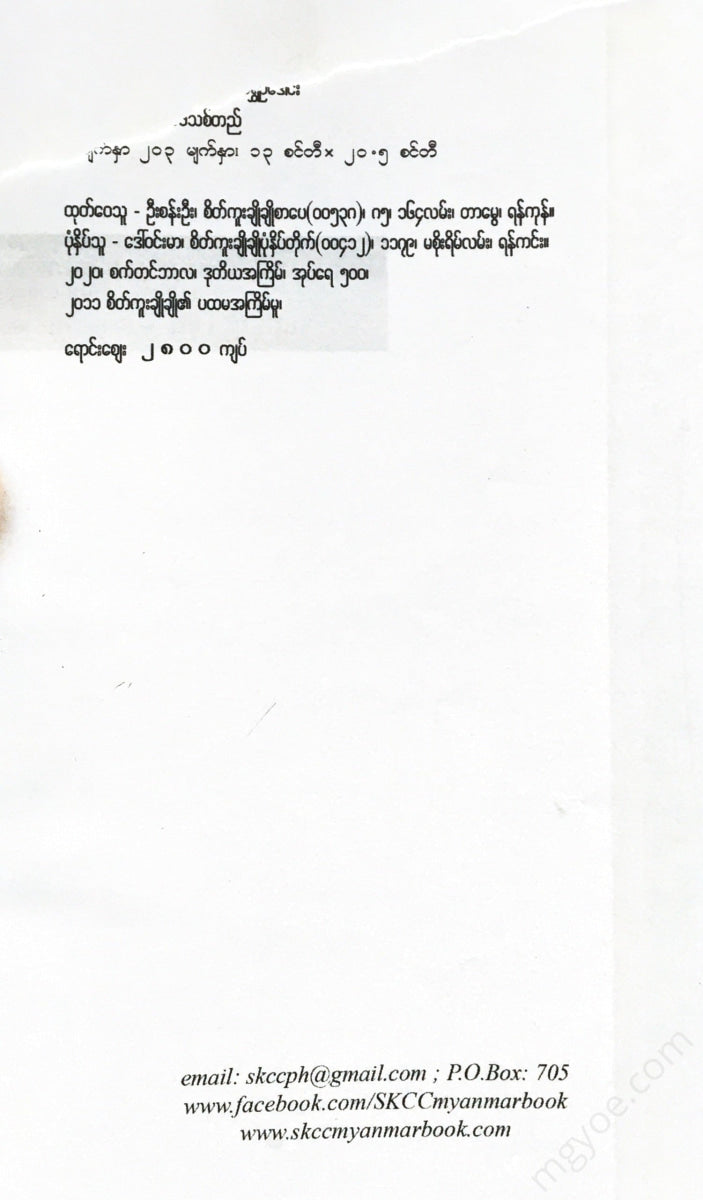 သစ်တည်
မျက်နှာ ၂၀၃ မျက်နှာ၊ ၁၃ စင်တီ× ၂၀.၅ စင်တီ
ထုတ်ဝေသူ - ဦးစန်းဦး၊ စိတ်ကူးချိုချိုစာပေ(၀၀၅၃၈)၊ ဂ၅၊ ၁၆၄လမ်း၊ တာမွေ၊ ရန်ကုန်။
ပုံနှိပ်သူ - ဒေါ်ဝင်းမာ၊ စိတ်ကူးချိုချိုပုံနှိပ်တိုက်(၀၀၄၁၂)၊ ၁၁၇၉၊ မစိုးရိမ်လမ်း၊ ရန်ကင်း။
၂၀၂၀၊ စက်တင်ဘာလ၊ ဒုတိယအကြိမ်၊ အုပ်ရေ ၅၀၀၊
၂၀၁၁ စိတ်ကူးချိုချို၏ ပထမအကြိမ်မူ၊
ရောင်းဈေး ၂၈၀၀ ကျပ်
email: skccph@gmail.com ; P.O.Box: 705
www.facebook.com/SKCCmyanmarbook
www.skccmyanmarbook.com
mgyoe.com